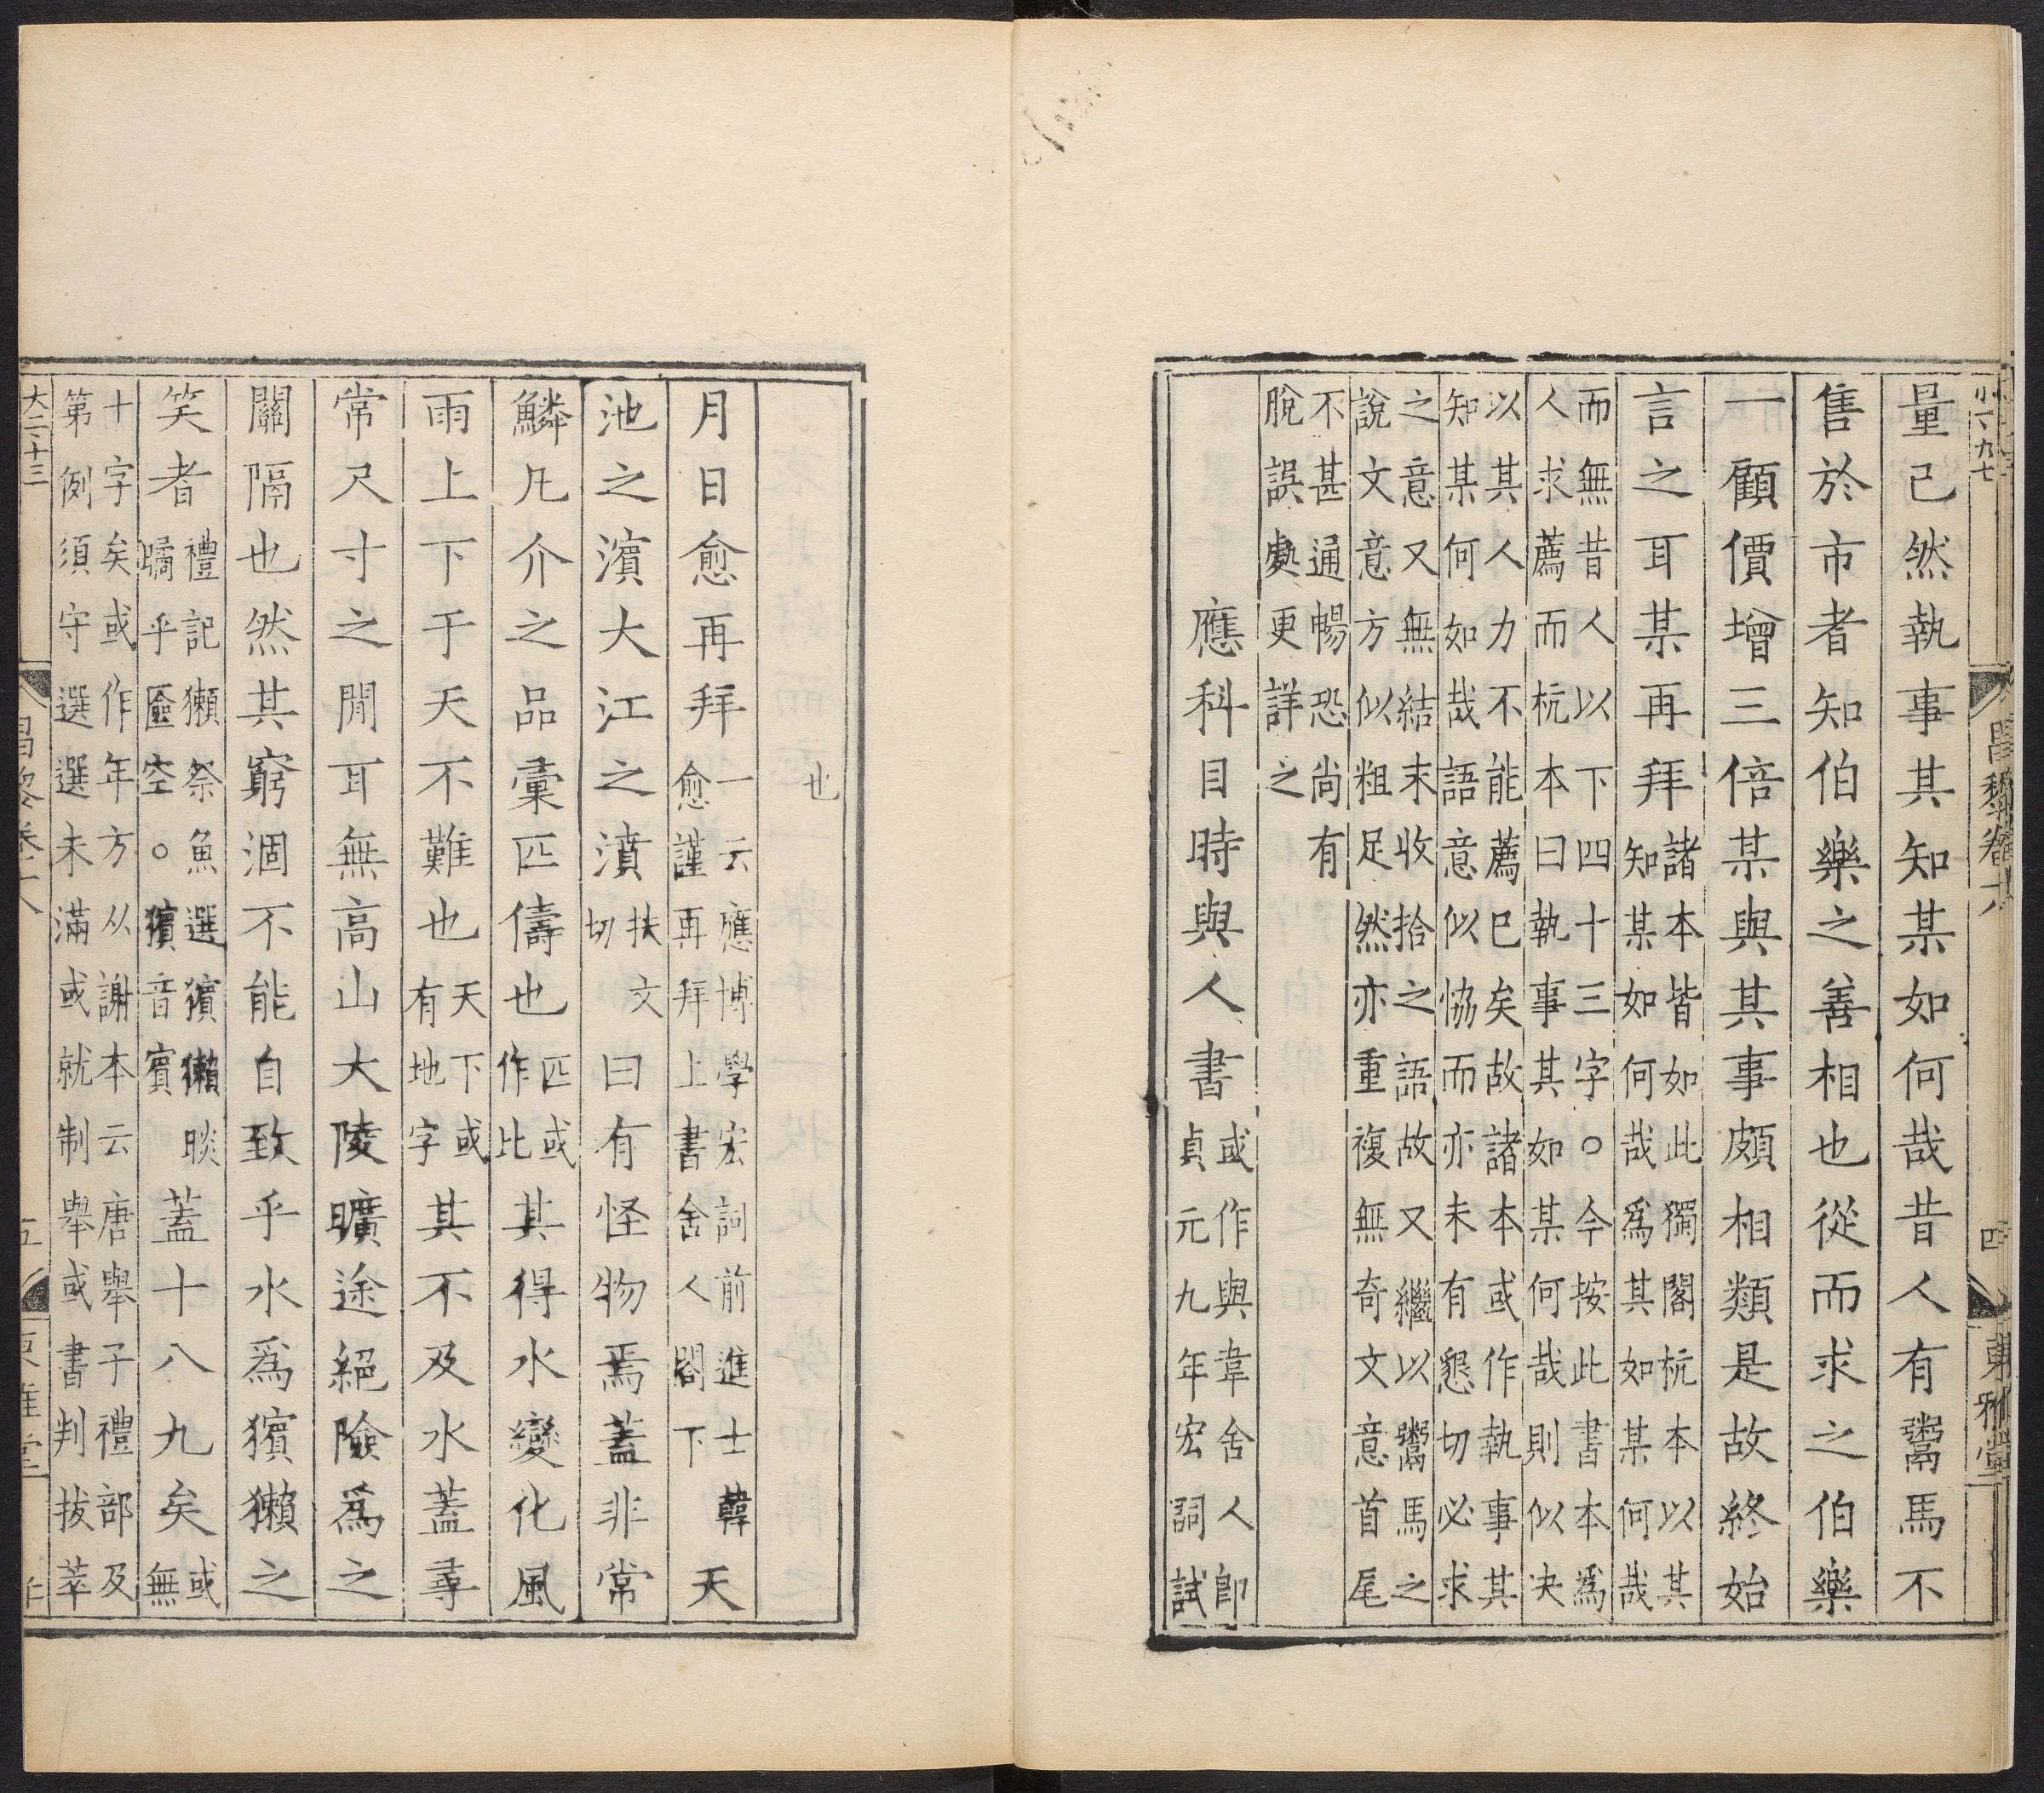 小一九七
昌黎卷十八
四
東雅堂
量己然執事其知某如何哉昔人有鬻馬不
售於市者知伯樂之善相也從而求之伯樂
一顧價增三倍某與其事頗相類是故終始
言之耳某再拜諸本皆如此獨閣杭本以其
知某如何哉爲其如某何哉
而無昔人以下四十三字○今按此書本爲
人求薦而杭本曰執事其如某何哉則似决
以其人力不能薦已矣故諸本或作執事其
知某何如哉語意似恊而亦未有懇切必求
之意又無結末收拾之語故又繼以鬻馬之
說文意方似粗足然亦重複無奇文意首尾
不甚通暢恐尚有
脫誤處更詳之
應科目時與人書或作與韋舍人卽
貞元九年宏詞試
也
月日愈再拜一云應博學宏詞前進士韓
愈謹再拜上書舍人閣下天
池之濱大江之濆扶文
切曰有怪物焉蓋非常
鱗凡介之品彙匹儔也匹或
作比其得水變化風
雨上下于天不難也天下或
有地字其不及水蓋尋
常尺寸之閒耳無高山大陵曠途絕險爲之
關隔也然其窮涸不能自致乎水爲獱獺之
笑者禮記獺祭魚選獱獺睒
瞲乎廅空○獱音賓蓋十八九矣或
無
十字矣或作年方从謝本云唐舉子禮部及
第例須守選選未滿或就制舉或書判拔萃
大二十三
昌黎卷十八
五
東雅堂